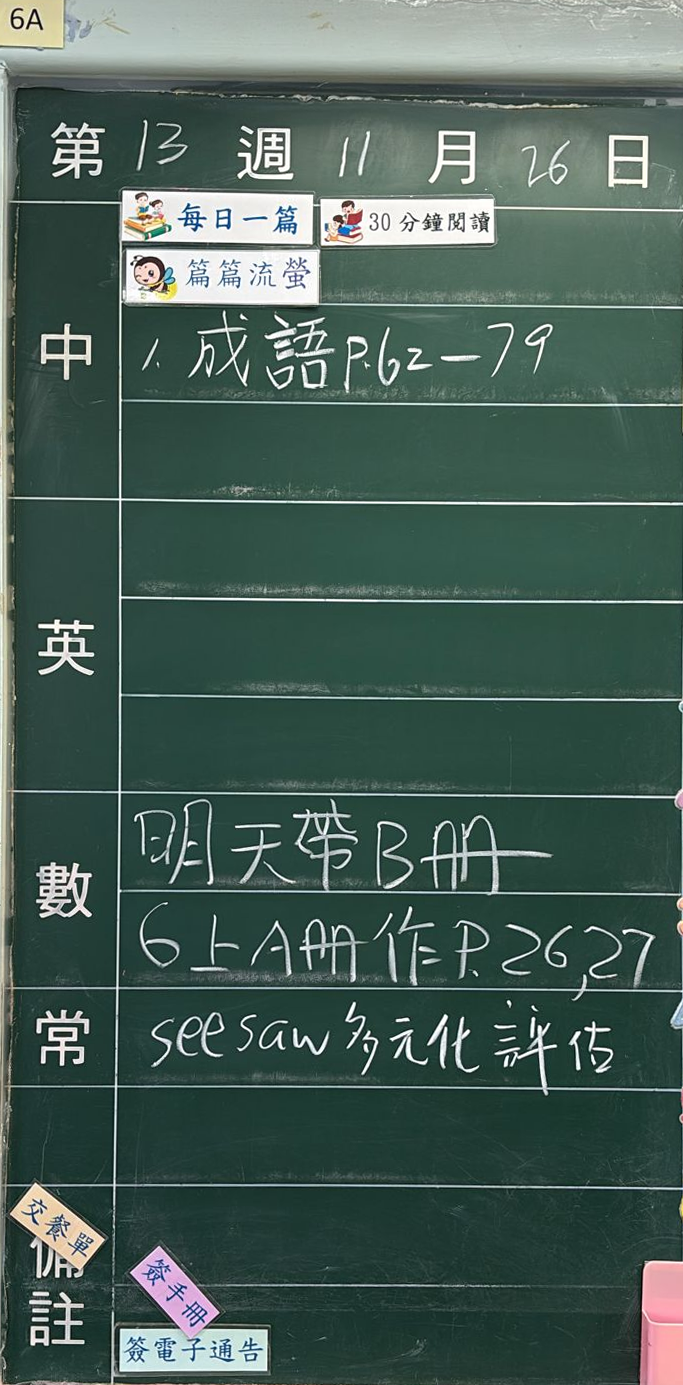 6A
第 13 週 11 月 26 日
每日一篇 30分鐘閱讀
篇篇流螢
中 1. 成語 P.62-79
英
數 明天帶B冊
6上A冊作P.26,27
常 seesaw多元化評估
交餐單
備註
簽手冊
簽電子通告